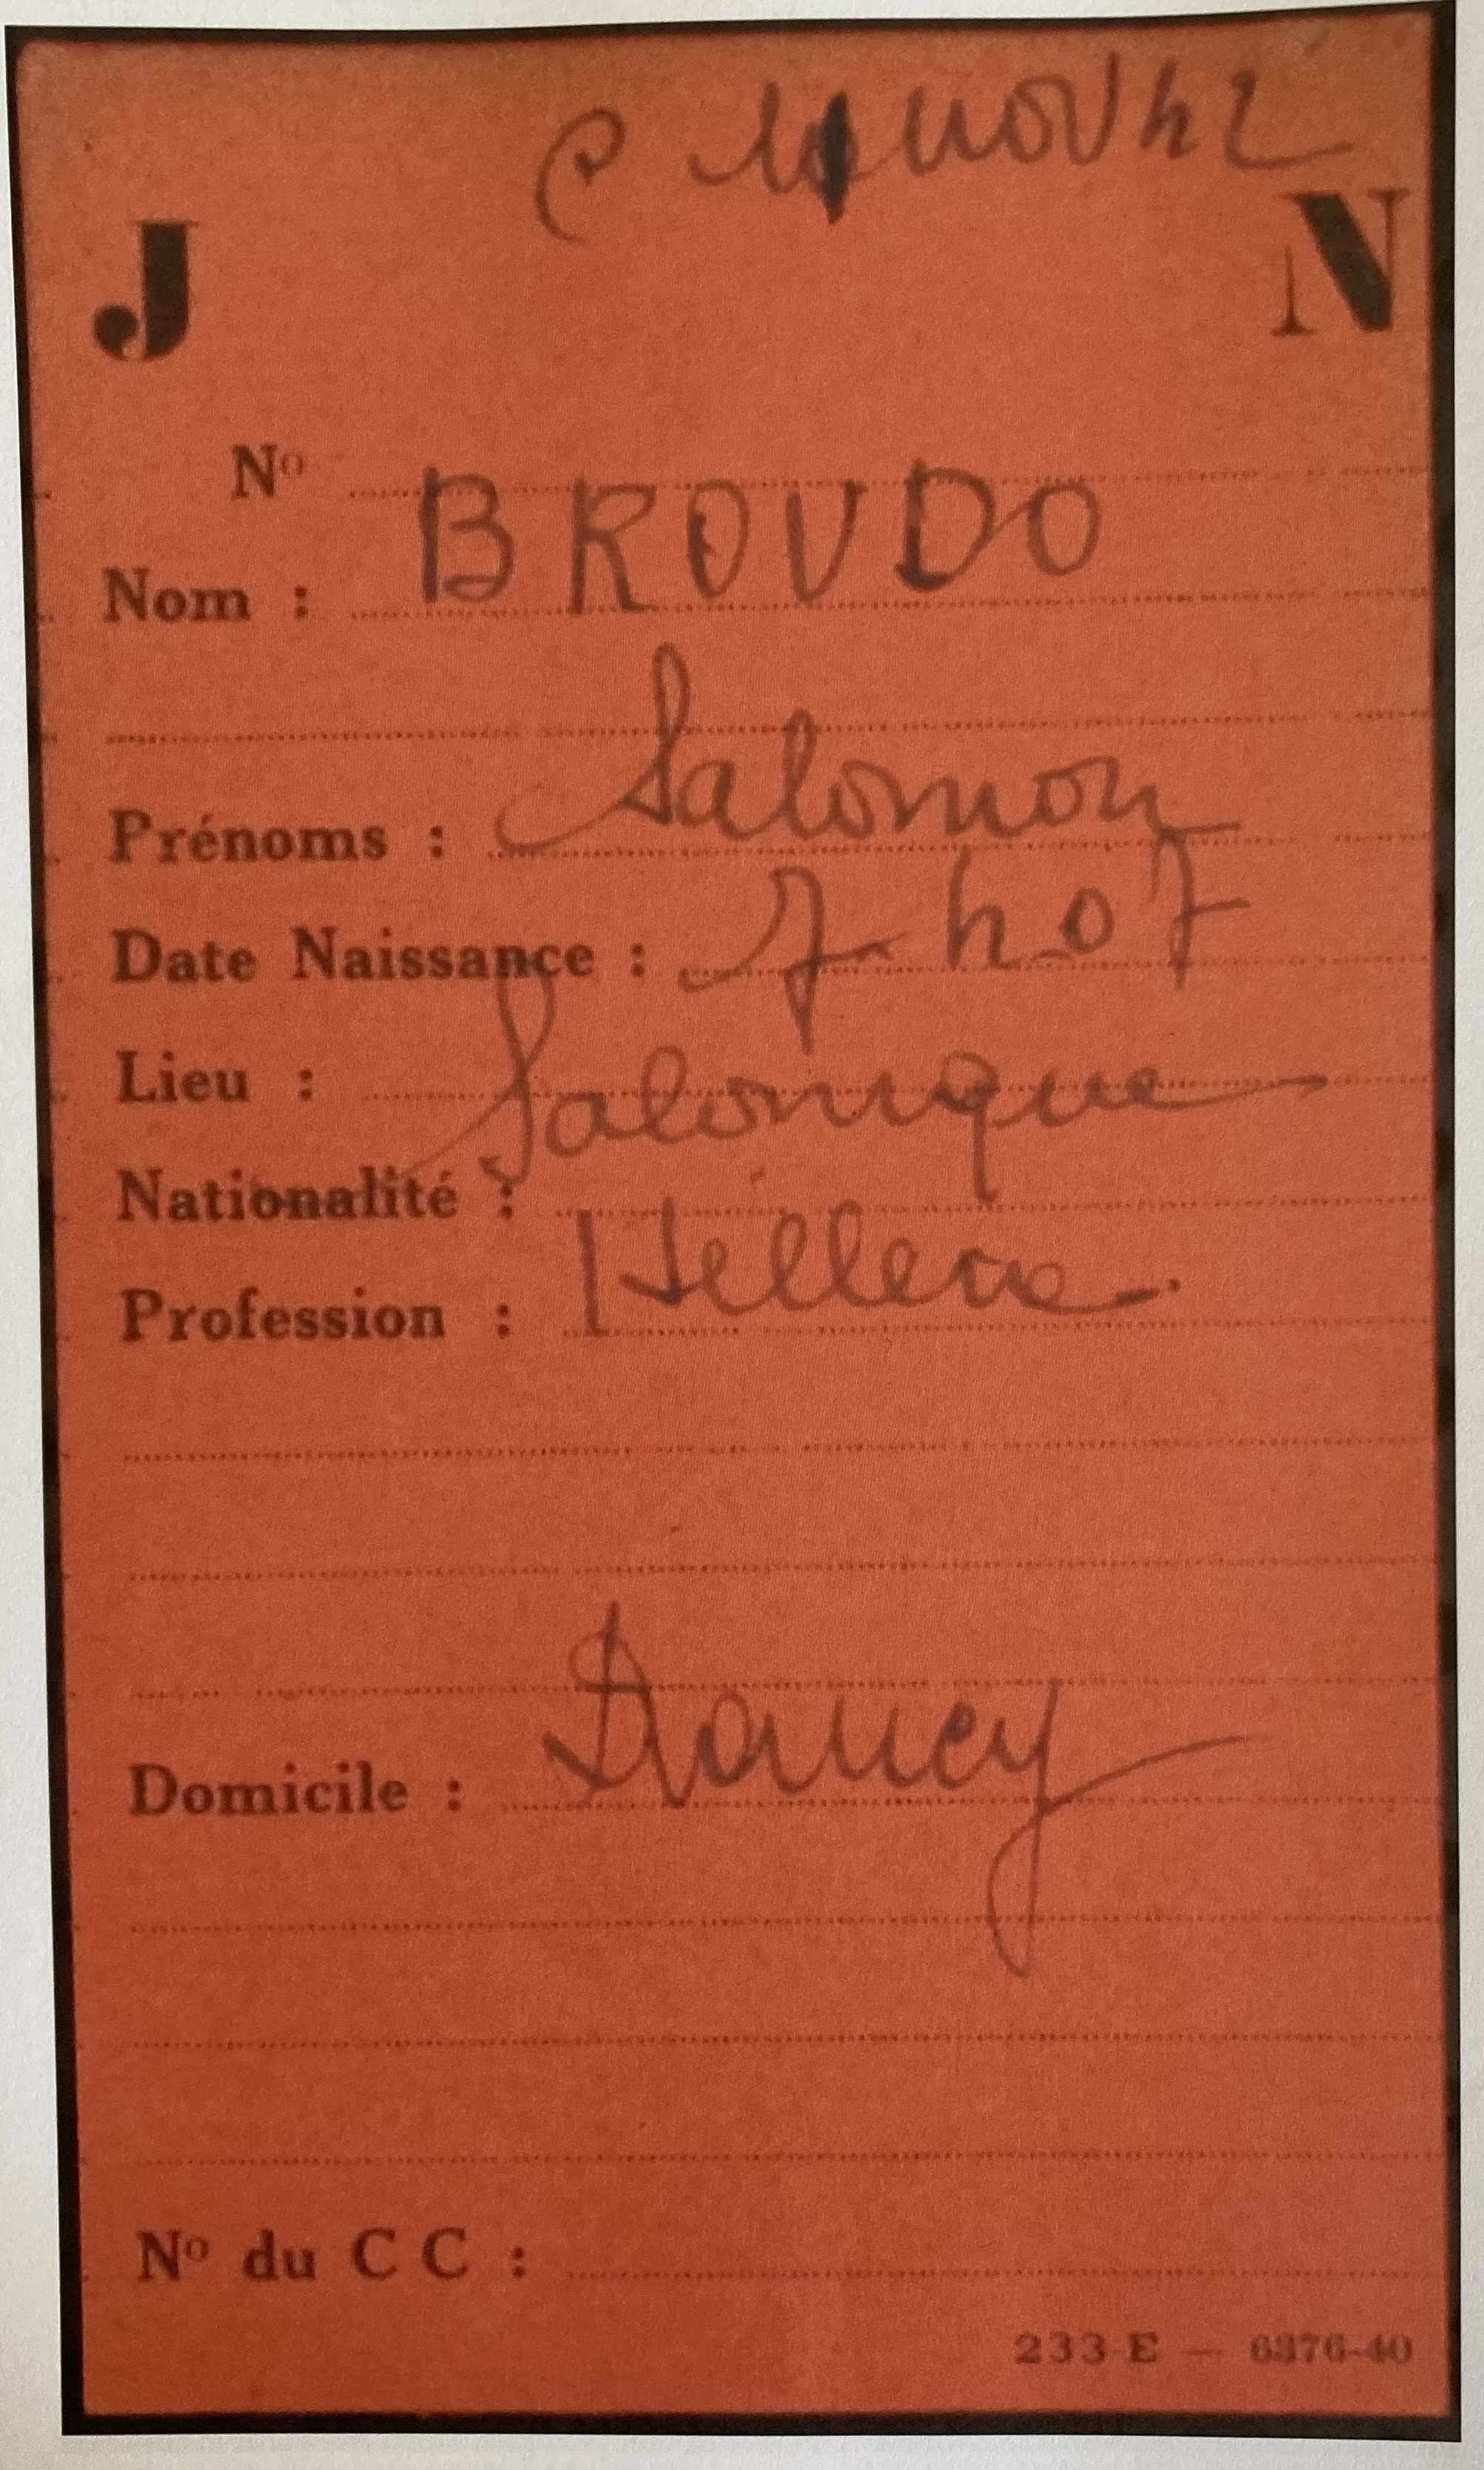 nov 42
J N
No
Nom : BROUDO
Prénoms : Salomon
Date Naissance : 7 4 07
Lieu : Salonique
Nationalité :
Profession : Hellene
Domicile : Drancy
No du C C :
233 E — 6376-40